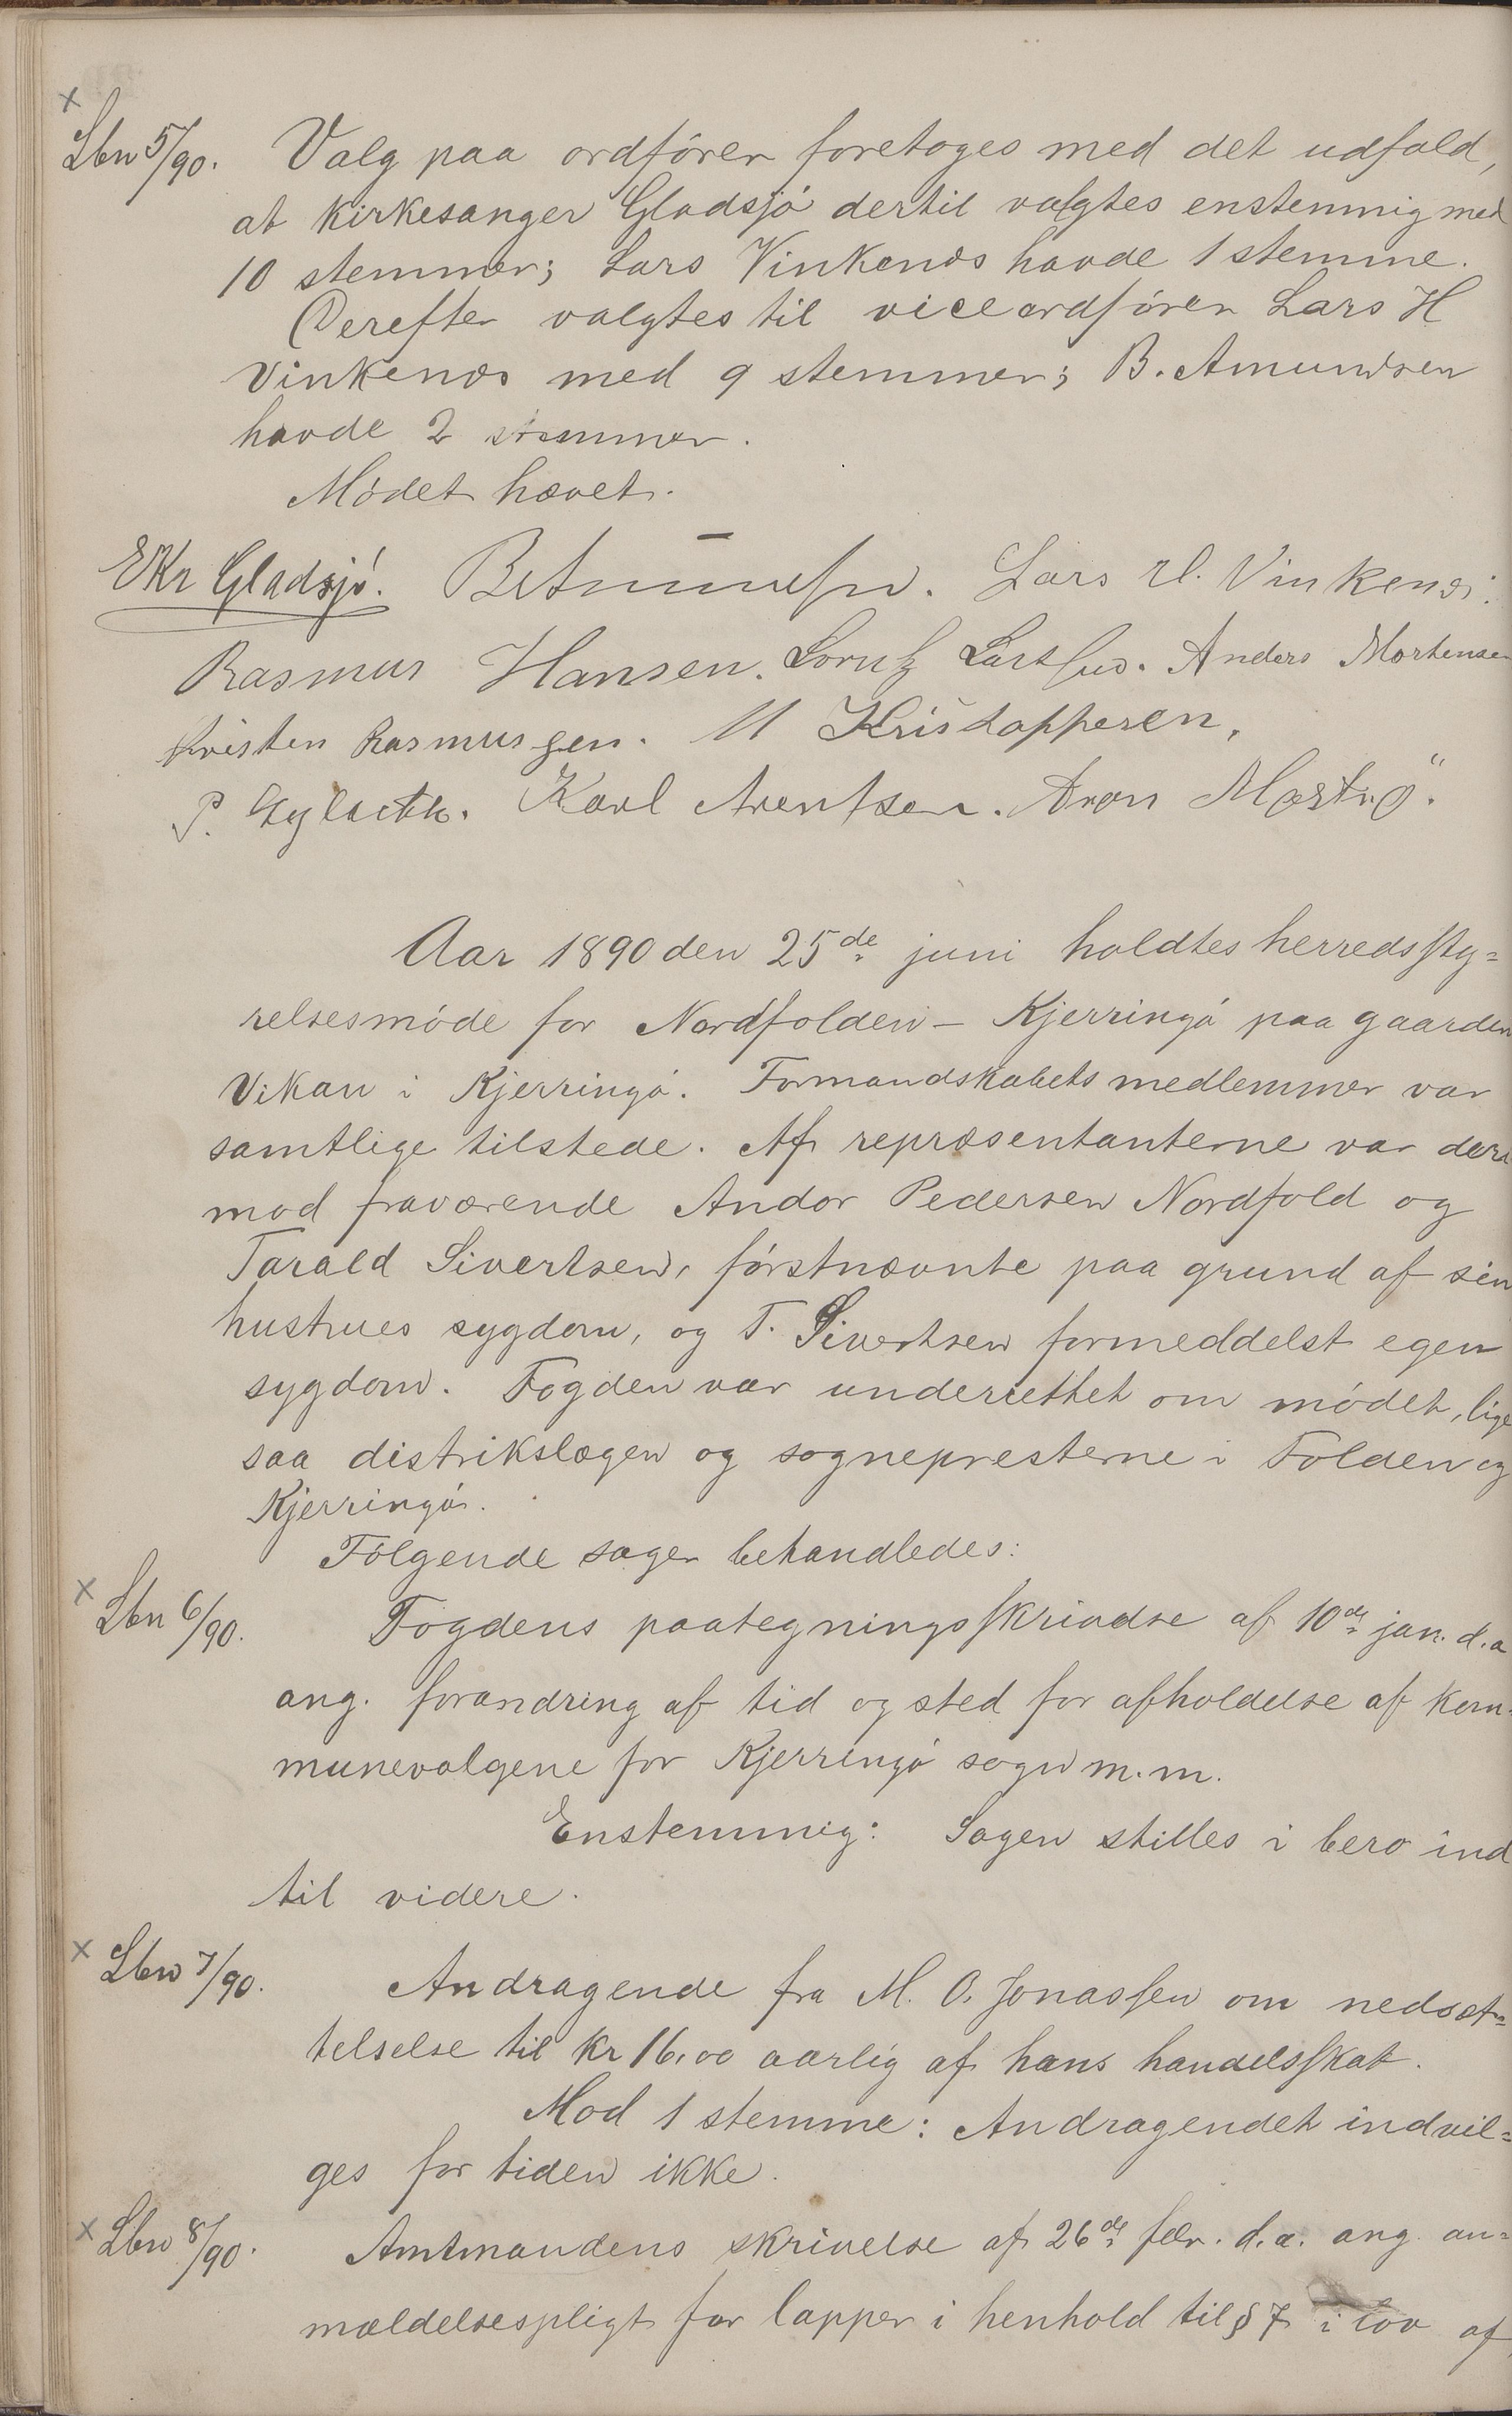 x
Lbn 5/90. Valg paa ordfører foretoges med det udfald,
at kirkesanger Gladsjø dertil valgtes enstemmig med
10 stemmer; Lars Vinkenæs havde 1 stemme.
Derefter valgtes til viceordfører Lars H
Vinkenæs med 9 stemmer; B. Amundsen
havde 2 stemmer.
Mødet hævet.
EKr Gladsjø. Lars H. Vinkenæs.
Rasmus Hansen. Anders Mortensen
Kristen Rasmussen. M Kristoppersen,
P. Karl Arentsen. Aron
Aar 1890 den 25de juni holdtes herredssty=
relsesmøde for Nordfolden - Kjerringø paa gaarden
Vikan i Kjerringø. Formandskabets medlemmer var
samtlige tilstede. Af repræsentanterne var deri
mod fraværende Andor Pedersen Nordfold og
Tarald Sivertsen, førstnævnte paa grund af sin
hustrues sygdom, og T. Sivertsen formeddelst egen
sygdom. Fogden var underrettet om mødet, lige
saa distrikslægen og sognepresterne i Folden og
Kjerringø.
Følgende sager behandledes:
x
Lbn 6/90. Fogdens paategningsskrivdse af 10de jan. d.a
ang. forandring af tid og sted for afholdelse af kom=
munevalgene for Kjerringø sogn m.m.
Enstemmig: Sagen stilles i bero ind
til videre.
x Lbn 7/90. Andragende fra M. O. Jonassen om nedsæt=
telselse til kr 16,00 aarlig af hans handelsskat.
Mod 1 stemme: Andragendet indvil=
ges for tiden ikke.
x Lbn 8/90. Amtmandens skrivelse af 26de febr. d.a. ang. an=
mældelsespligt for lapper i henhold til § 7 i lov af